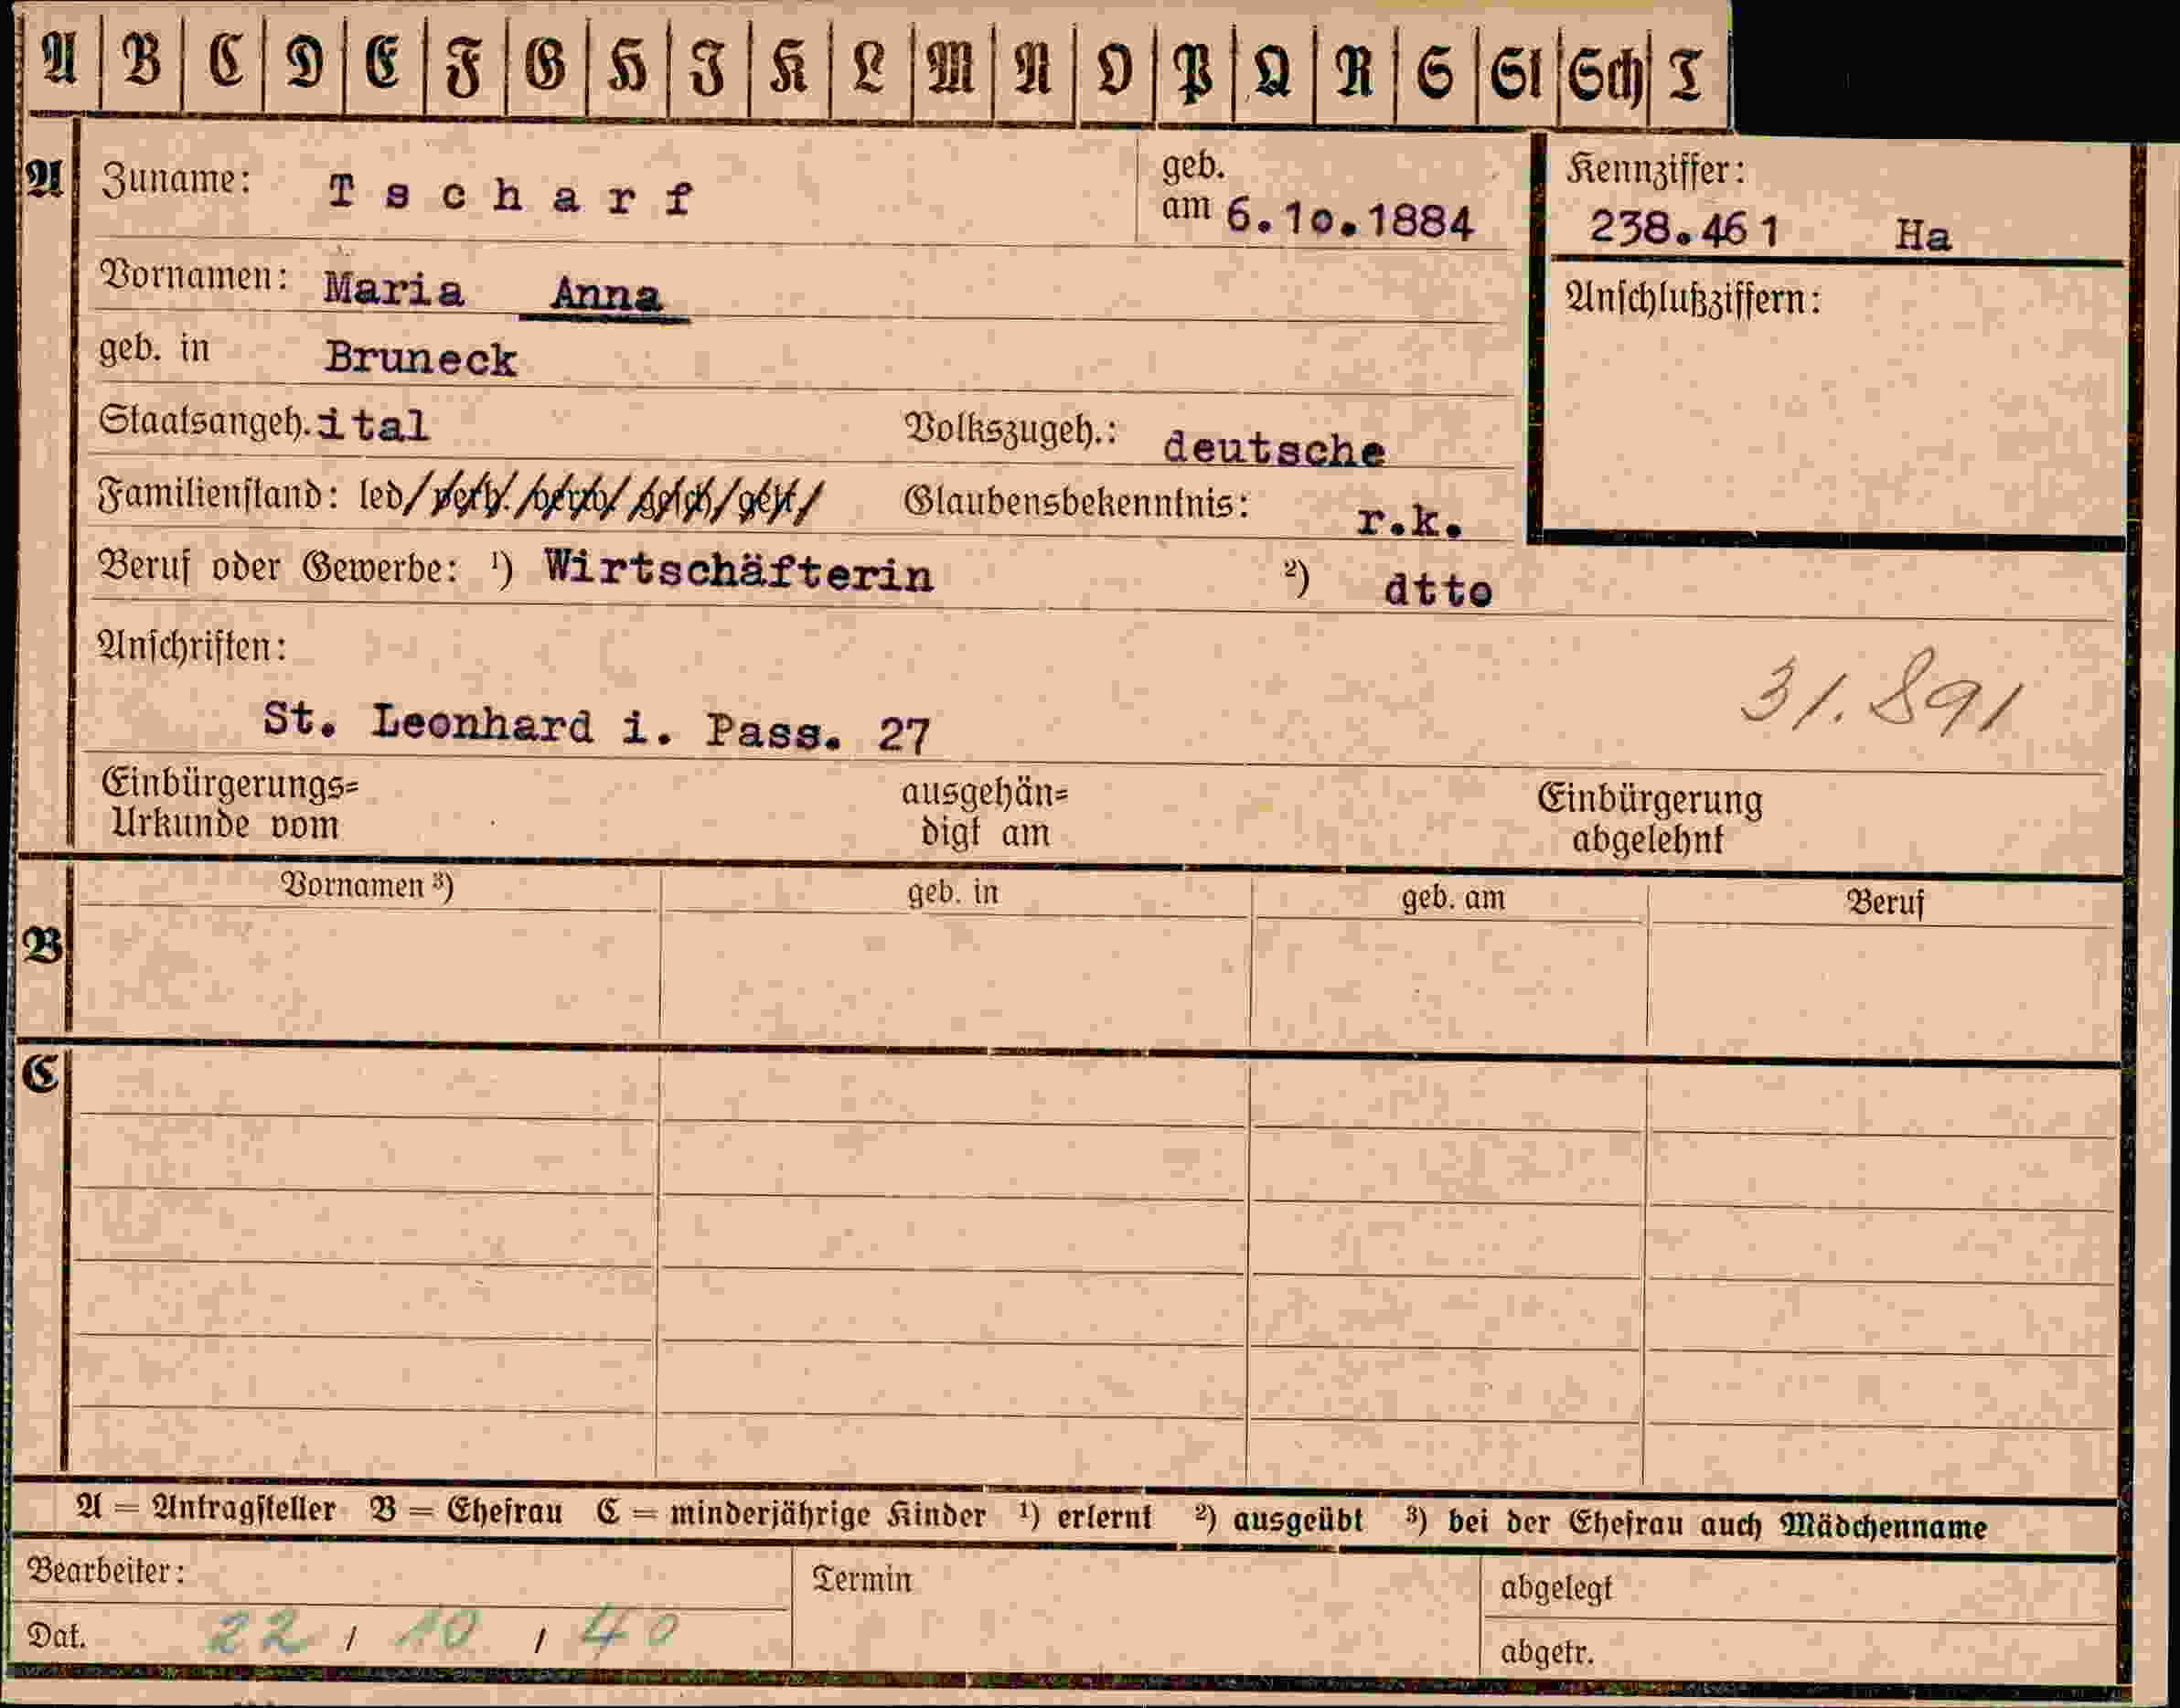 A B C D E F G H I K L M N O P Q R S St Sch T
A Zuname: Tscharf geb. am 6.10.1884 Kennziffer: 238.461 Ha
Vornamen: Maria Anna Anschlußziffern:
geb. in Bruneck
Staatsangeh. ital Volkszugeh.: deutsche
Familienstand: led/verh./verw/gesch/get/ Glaubensbekenntnis: r.k.
Beruf oder Gewerbe: ¹) Wirtschäfterin ²) dtto
Anschriften:
31.891
St. Leonhard i. Pass. 27
Einbürgerungs= ausgehän= Einbürgerung
Urkunde vom digt am abgelehnt
B Vornamen ³) geb. in geb. am Beruf
C
A = Antragsteller B = Ehefrau C = minderjährige Kinder ¹) erlernt ²) ausgeübt ³) bei der Ehefrau auch Mädchenname
Bearbeiter: Termin abgelegt
Dat. 22 / 10 / 40 abgetr.